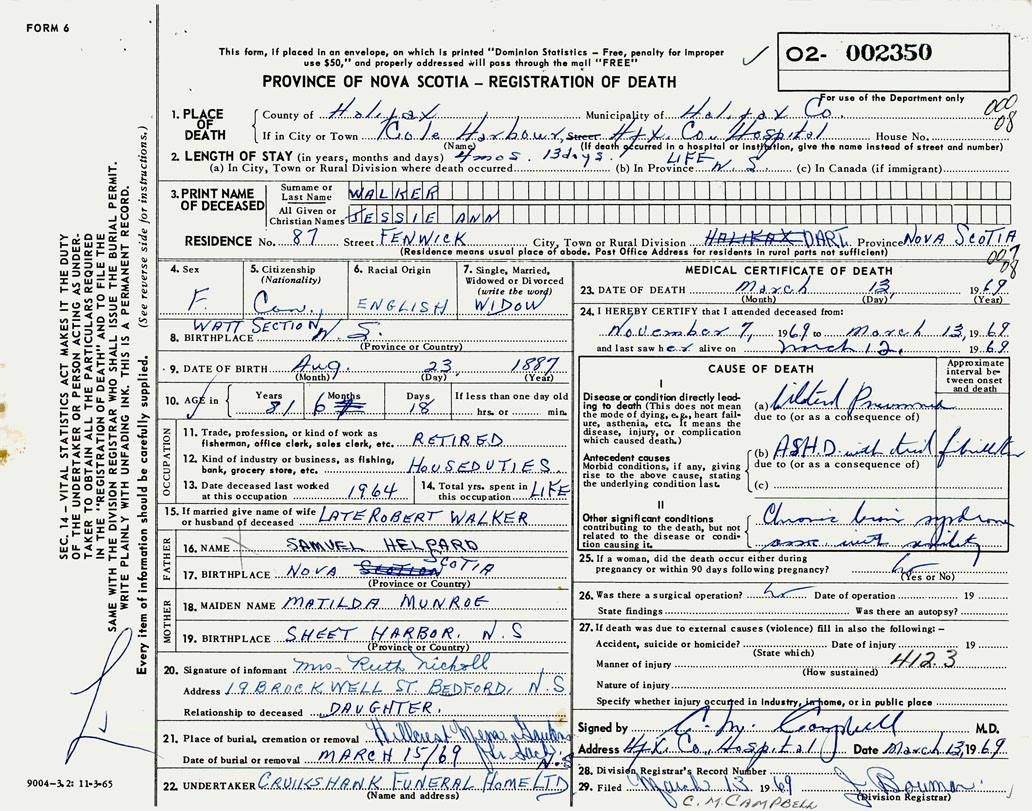 FORM 6
This form, if placed in an envelope, on which is printed "Dominion Statistics – Free, penalty for improper
use $50," and properly addressed will pass through the mail "FREE"
02- 002350
PROVINCE OF NOVA SCOTIA – REGISTRATION OF DEATH
For use of the Department only
000
08
1. PLACE OF DEATH
County of Halifax Municipality of Halifax Co.
If in City or Town Cole Harbour Street Hfx. Co. Hospital House No.
(Name) (If death occurred in a hospital or institution, give the name instead of street and number)
2. LENGTH OF STAY (in years, months and days) 4mos. 13days. LIFE
(a) In City, Town or Rural Division where death occurred (b) In Province N.S. (c) In Canada (if immigrant)
3. PRINT NAME OF DECEASED
Surname or Last Name WALKER
All Given or Christian Names JESSIE ANN
RESIDENCE No. 87 Street FENWICK City, Town or Rural Division HALIFAX DART. Province NOVA SCOTIA
(Residence means usual place of abode. Post Office Address for residents in rural parts not sufficient)
007
08
4. Sex F.
5. Citizenship (Nationality) Can.
6. Racial Origin ENGLISH
7. Single, Married, Widowed or Divorced (write the word) WIDOW
WATT SECTION
8. BIRTHPLACE N.S.
(Province or Country)
9. DATE OF BIRTH Aug. 23, 1887
(Month) (Day) (Year)
10. AGE in Years 81 Months 6 Days 18 If less than one day old hrs. or min.
OCCUPATION
11. Trade, profession, or kind of work as fisherman, office clerk, sales clerk, etc. RETIRED
12. Kind of industry or business, as fishing, bank, grocery store, etc. HOUSEDUTIES
13. Date deceased last worked at this occupation 1964
14. Total yrs. spent in this occupation LIFE
15. If married give name of wife or husband of deceased LATE ROBERT WALKER
FATHER
16. NAME SAMUEL HELPARD
17. BIRTHPLACE NOVA SCOTIA
(Province or Country)
MOTHER
18. MAIDEN NAME MATILDA MUNROE
19. BIRTHPLACE SHEET HARBOR. N.S
(Province or Country)
20. Signature of informant Mrs. Ruth Nicholl
Address 19 BROCKWELL ST. BEDFORD, N.S.
Relationship to deceased DAUGHTER.
21. Place of burial, cremation or removal Hillcrest Mem. Gardens
N.S
Date of burial or removal MARCH 15/69
22. UNDERTAKER CRUIKSHANK FUNERAL HOME LTD
(Name and address)
MEDICAL CERTIFICATE OF DEATH
23. DATE OF DEATH March 13, 1969
(Month) (Day) (Year)
24. I HEREBY CERTIFY that I attended deceased from:
November 7, 1969 to March 13, 1969.
and last saw her alive on March 12, 1969.
CAUSE OF DEATH
Approximate interval between onset and death
I
Disease or condition directly leading to death (This does not mean the mode of dying, e.g., heart failure, asthenia, etc. It means the disease, injury, or complication which caused death.)
(a) Bilateral Pneumonia
due to (or as a consequence of)
Antecedent causes
Morbid conditions, if any, giving rise to the above cause, stating the underlying condition last.
(b) ASHD with atrial fibrillation
due to (or as a consequence of)
(c)
II
Other significant conditions contributing to the death, but not related to the disease or condition causing it.
Chronic brain syndrome
assoc with senility
25. If a woman, did the death occur either during pregnancy or within 90 days following pregnancy? No
(Yes or No)
26. Was there a surgical operation? No Date of operation 19
State findings Was there an autopsy?
27. If death was due to external causes (violence) fill in also the following: –
Accident, suicide or homicide? Date of injury 19
(State which)
Manner of injury 412.3
(How sustained)
Nature of injury
Specify whether injury occurred in Industry, in home, or in public place
Signed by C. M. Campbell M.D.
Address Hfx. Co. Hospital Date March 13, 1969
28. Division Registrar's Record Number
29. Filed March 13 1969 J. Bowman
(Division Registrar)
C. M. CAMPBELL
SEC. 14 – VITAL STATISTICS ACT MAKES IT THE DUTY
OF THE UNDERTAKER OR PERSON ACTING AS UNDER-
TAKER TO OBTAIN ALL THE PARTICULARS REQUIRED
IN THE "REGISTRATION OF DEATH" AND TO FILE THE
SAME WITH THE DIVISION REGISTRAR WHO SHALL ISSUE THE BURIAL PERMIT.
WRITE PLAINLY WITH UNFADING INK. THIS IS A PERMANENT RECORD.
Every item of information should be carefully supplied. (See reverse side for instructions.)
9004-3.2: 11-3-65